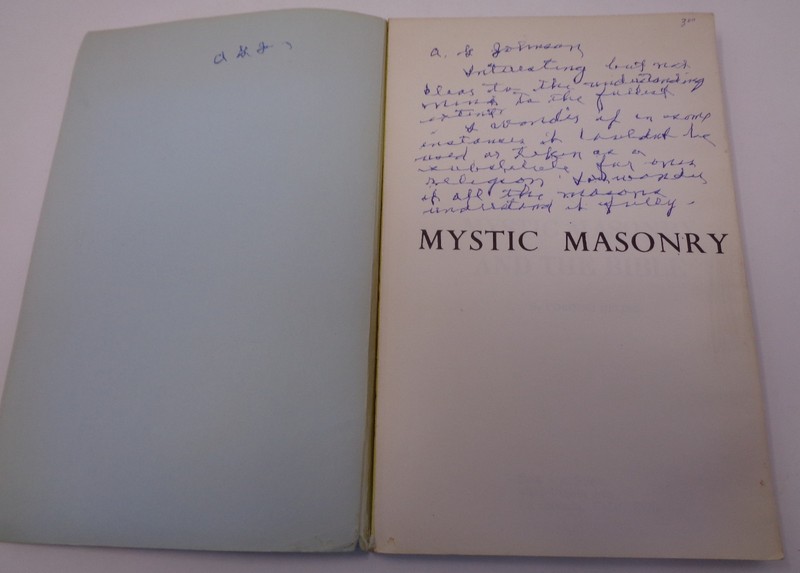 3⁰⁰
A. G. Johnson
Interesting but not
clear to the understanding
mind to the fullest
extent.
I wonder if in some
instances it couldn't be
used or taken as a
substitute for ones
religion. I wonder
if all the masons
understand it fully.
MYSTIC MASONRY